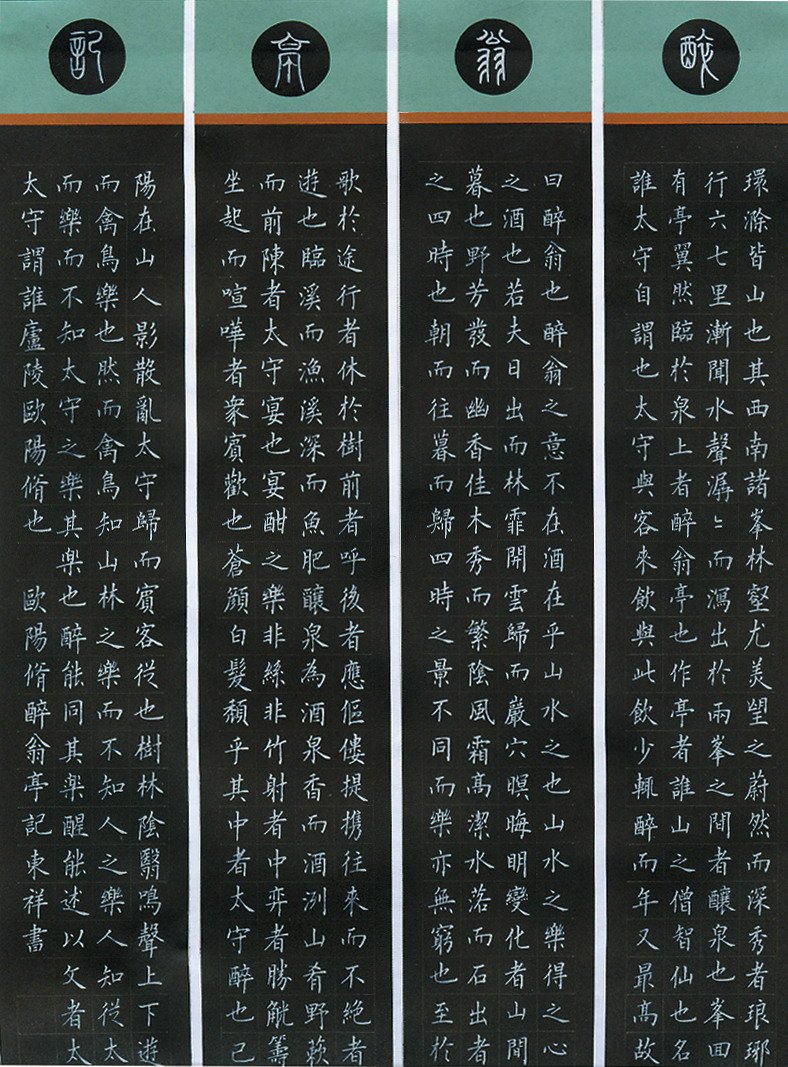 醉
環滁皆山也其西南諸峯林壑尤美望之蔚然而深秀者琅琊
行六七里漸聞水聲潺〻而瀉出於兩峯之間者釀泉也峯回
有亭翼然臨於泉上者醉翁亭也作亭者誰山之僧智仙也名
誰太守自謂也太守與客來飲與此飲少輒醉而年又最高故
翁
曰醉翁也醉翁之意不在酒在乎山水之也山水之樂得之心
之酒也若夫日出而林霏開雲歸而巖穴暝晦明變化者山間
暮也野芳發而幽香佳木秀而繁陰風霜高潔水落而石出者
之四時也朝而往暮而歸四時之景不同而樂亦無窮也至於
亭
歌於途行者休於樹前者呼後者應傴僂提携往來而不絕者
遊也臨溪而漁溪深而魚肥釀泉為酒泉香而酒洌山肴野蔌
而前陳者太守宴也宴酣之樂非絲非竹射者中弈者勝觥籌
坐起而喧嘩者眾賓歡也蒼顏白髮頹乎其中者太守醉也已
記
陽在山人影散亂太守歸而賓客從也樹林陰翳鳴聲上下遊
而禽鳥樂也然而禽鳥知山林之樂而不知人之樂人知從太
而樂而不知太守之樂其樂也醉能同其樂醒能述以文者太
太守謂誰廬陵歐陽脩也 歐陽脩醉翁亭記東祥書